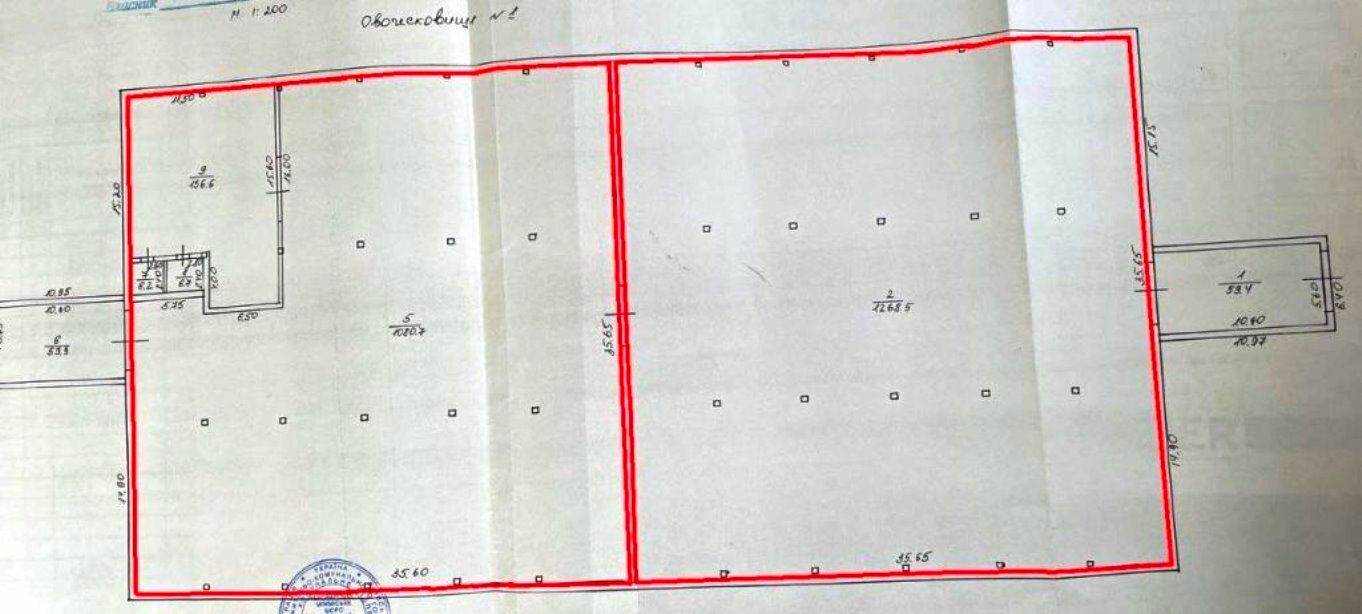 Власник
М 1:200
Овочесховище №1
11.50
15.20
9
156.6
15.60
16.00
6.2
2.40
6.7
2.40
4.00
5.75
6.50
10.95
10.40
6
59.9
5
1080.7
35.65
2
1268.5
15.15
35.65
1
59.4
5.60
6.40
10.40
10.97
14.90
14.80
35.60
35.65
УКРАЇНА